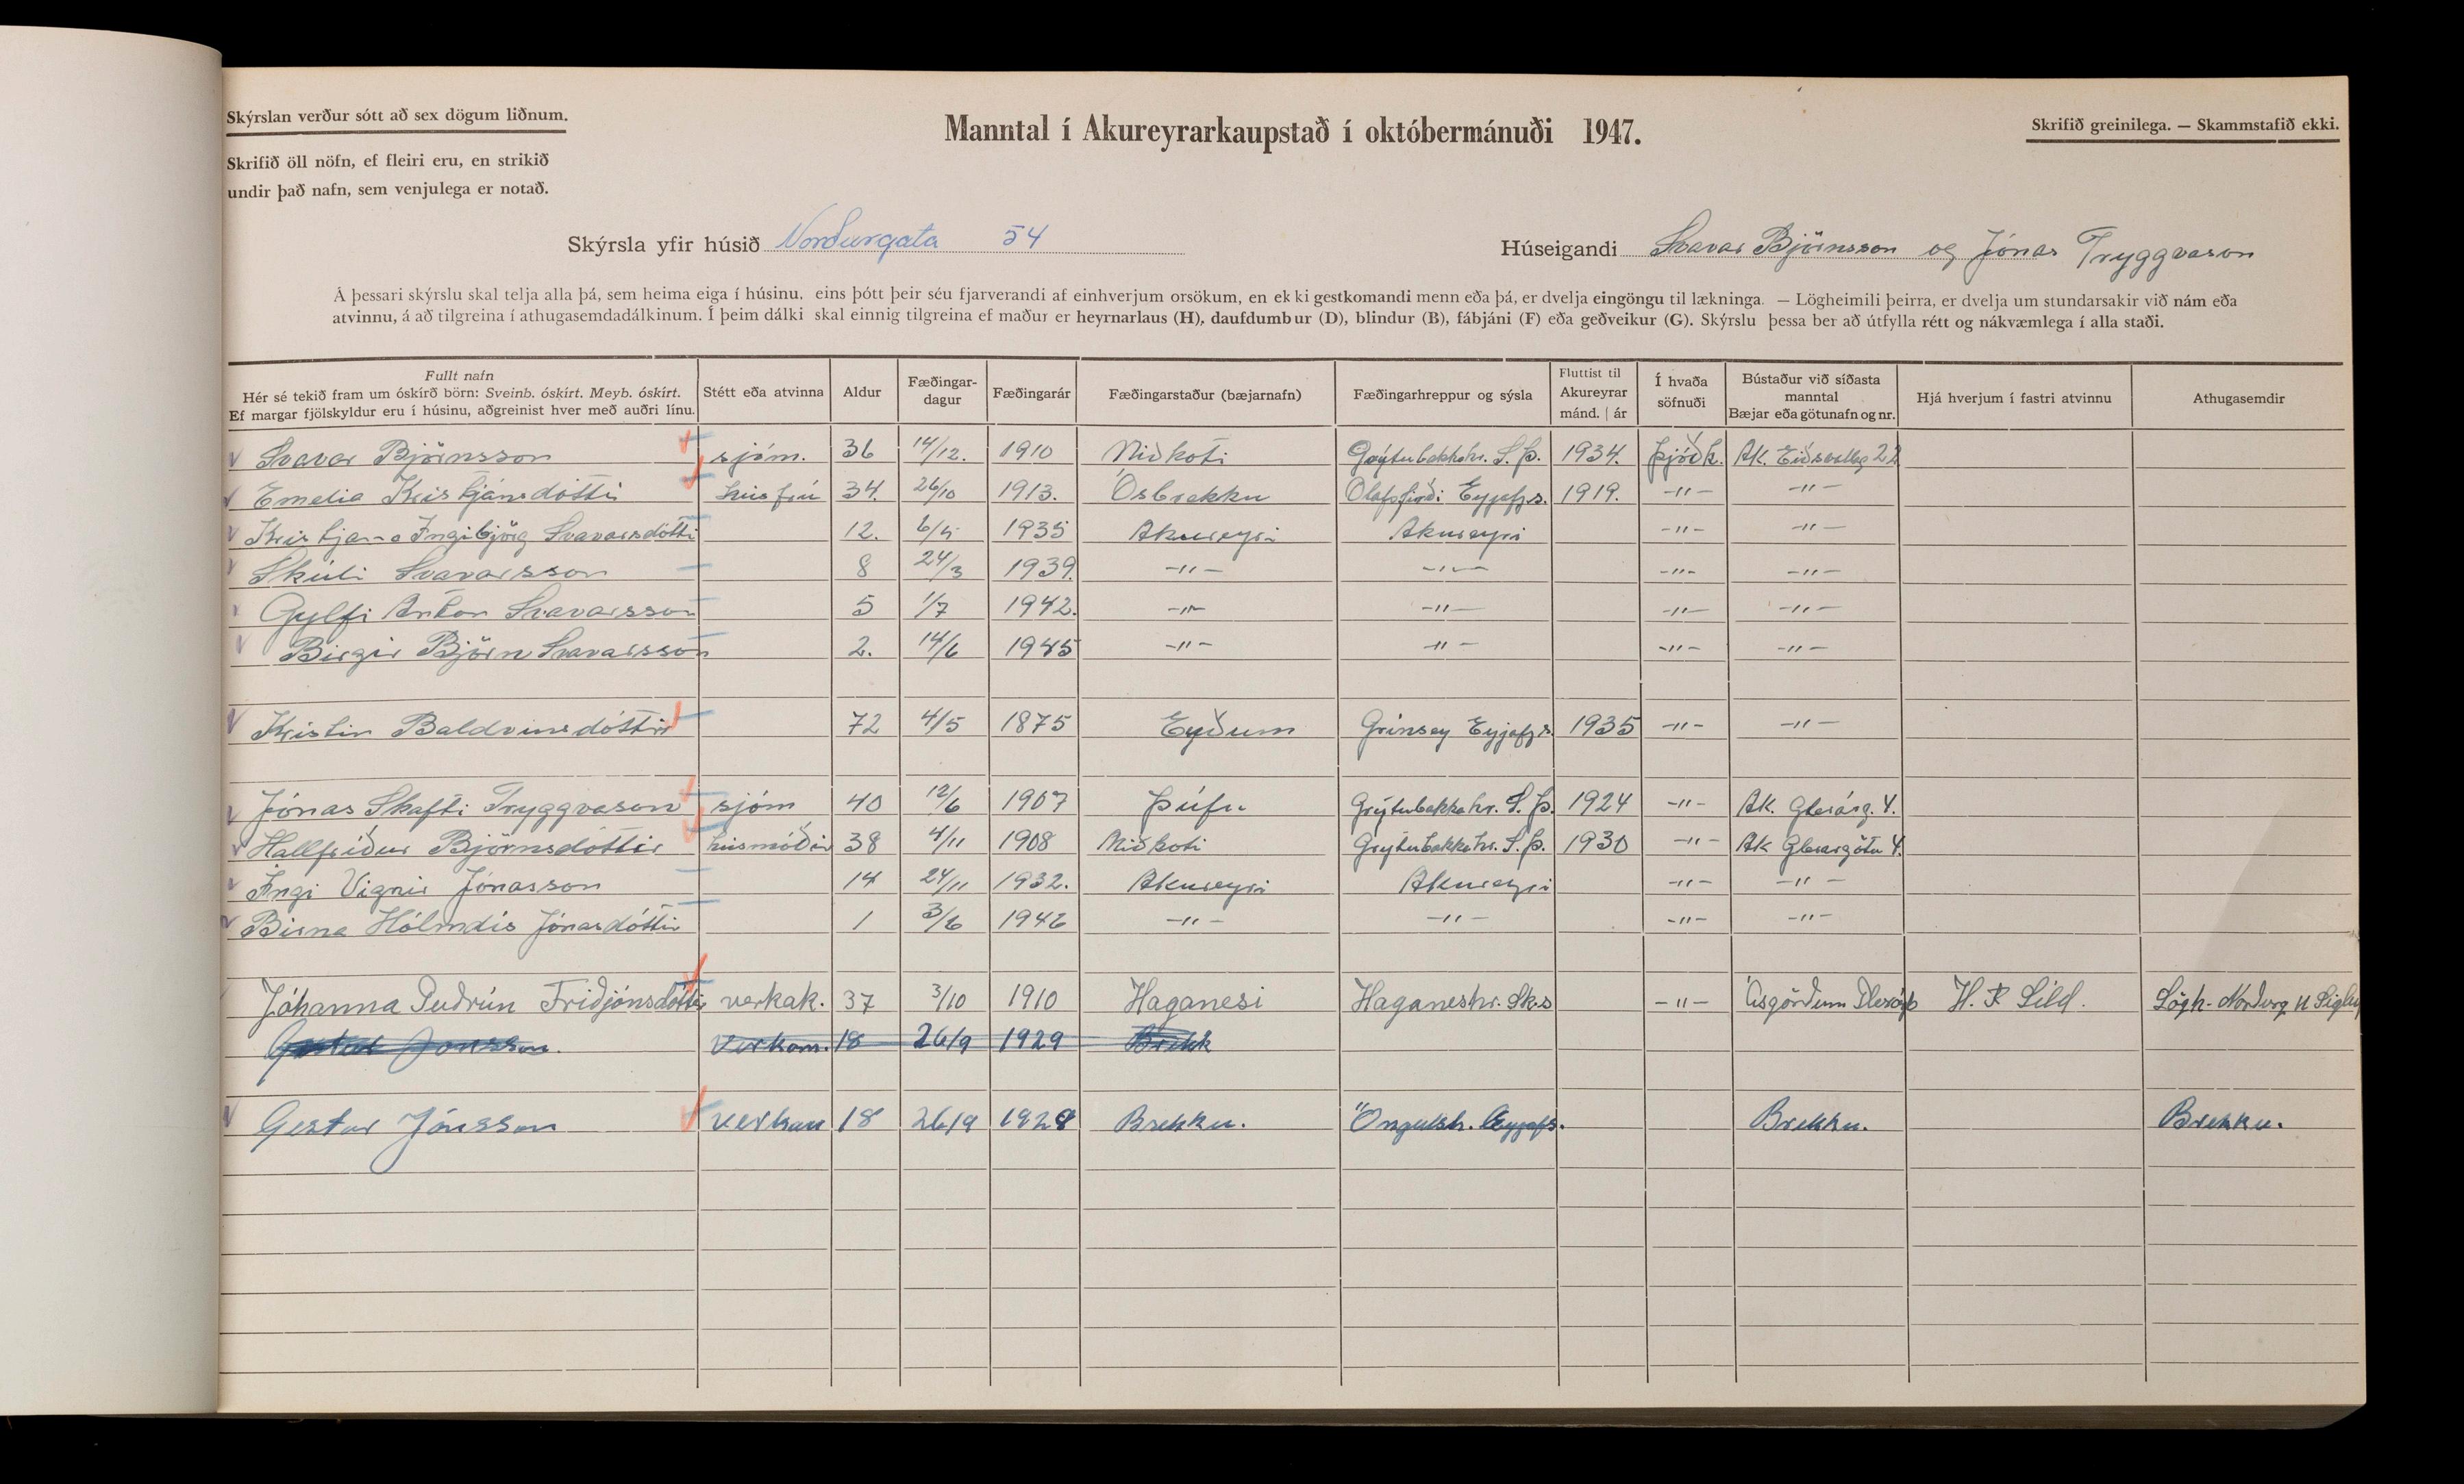 Skýrslan verður sótt að sex dögum liðnum.
Manntal í Akureyrarkaupstað í októbermánuði 1947.
Skrifið greinilega. — Skammstafið ekki.
Skrifið öll nöfn, ef fleiri eru, en strikið
undir það nafn, sem venjulega er notað.
Skýrsla yfir húsið Norðurgata 54
Húseigandi Svavar Björnsson og Jónas Tryggvason
Á þessari skýrslu skal telja alla þá, sem heima eiga í húsinu, eins þótt þeir séu fjarverandi af einhverjum orsökum, en ekki gestkomandi menn eða þá, er dvelja eingöngu til lækninga. — Lögheimili þeirra, er dvelja um stundarsakir við nám eða
atvinnu, á að tilgreina í athugasemdadálkinum. Í þeim dálki skal einnig tilgreina ef maður er heyrnarlaus (H), daufdumbur (D), blindur (B), fábjáni (F) eða geðveikur (G). Skýrslu þessa ber að útfylla rétt og nákvæmlega í alla staði.
Fullt nafn
Hér sé tekið fram um óskírð börn: Sveinb. óskírt. Meyb. óskírt.
Ef margar fjölskyldur eru í húsinu, aðgreinist hver með auðri línu.
Stétt eða atvinna
Aldur
Fæðingar-
dagur
Fæðingarár
Fæðingarstaður (bæjarnafn)
Fæðingarhreppur og sýsla
Fluttist til
Akureyrar
mánd. | ár
Í hvaða
söfnuði
Bústaður við síðasta
manntal
Bæjar eða götunafn og nr.
Hjá hverjum í fastri atvinnu
Athugasemdir
Svavar Björnsson sjóm. 36 14/12. 1910 Niðkoti Grýtubakkahr. S.Þ. 1934. Þjóðk. Ak. Eiðsvallag 22
Emelia Kristjánsdóttir húsfrú 34. 26/10 1913. Ósbrekku Ólafsfirði Eyjafjs. 1919. -"- -"-
Kristjana Ingibjörg Svavarsdóttir 12. 6/4 1935 Akureyri Akureyri -"- -"-
Skúli Svavarsson 8 24/3 1939. -"- -"- -"- -"-
Gylfi Anton Svavarsson 5 1/7 1942. -"- -"- -"- -"-
Birgir Björn Svavarsson 2. 14/6 1945 -"- -"- -"- -"-
Kristín Baldvinsdóttir 72 4/5 1875 Eyðum Grímsey Eyjafjs. 1935 -"- -"-
Jónas Skafti Tryggvason sjóm 40 12/6 1907 Þúfu Grýtubakkahr. S.Þ. 1924 -"- Ak. Glerárg. 4.
Hallfríður Björnsdóttir húsmóðir 38 4/11 1908 Niðkoti Grýtubakkahr. S.Þ. 1930 -"- Ak Glerárgötu 4.
Ingi Vignir Jónasson 14 24/11 1932. Akureyri Akureyri -"- -"-
Birna Hólmdís Jónasdóttir 1 3/6 1946 -"- -"- -"- -"-
Jóhanna Guðrún Friðjónsdóttir verkak. 37 3/10 1910 Haganesi Haganeshr. Sk.s -"- Ásgörðum Glerárþ H. R Síld. Lögh. Norðurg
Gestur Jónsson. Verkam. 18 26/9 1929 Brekk
Gestur Jónsson verkam 18 26/9 1928 Brekku. Öngulsh. Eyjafs. Brekku. Brekku.